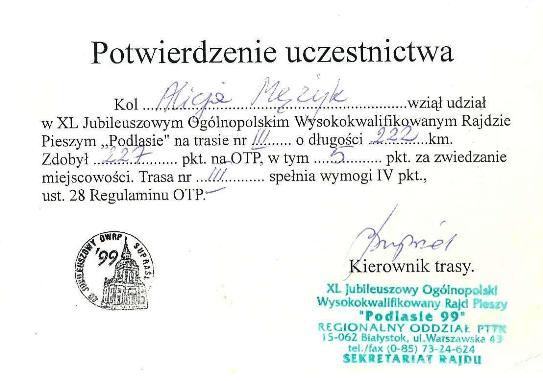 Potwierdzenie uczestnictwa
Kol ... Alicja Mężyk ... wziął udział
w XL Jubileuszowym Ogólnopolskim Wysokokwalifikowanym Rajdzie
Pieszym „Podlasie" na trasie nr III ...... o długości 222 ...km.
Zdobył ..227...... pkt. na OTP, w tym ....5...... pkt. za zwiedzanie
miejscowości. Trasa nr ...III......... spełnia wymogi IV pkt.,
ust. 28 Regulaminu OTP.
Kierownik trasy.
XL JUBILEUSZOWY OWRP SUPRAŚL
'99
XL Jubileuszowy Ogólnopolski
Wysokokwalifikowany Rajd Pieszy
"Podlasie 99"
REGIONALNY ODDZIAŁ PTTK
15-062 Białystok, ul.Warszawska 43
tel./fax (0-85) 73-24-624
SEKRETARIAT RAJDU